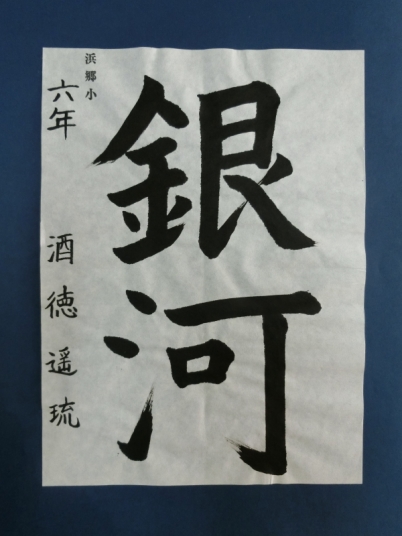 銀河
浜郷小
六年 酒徳遥琉